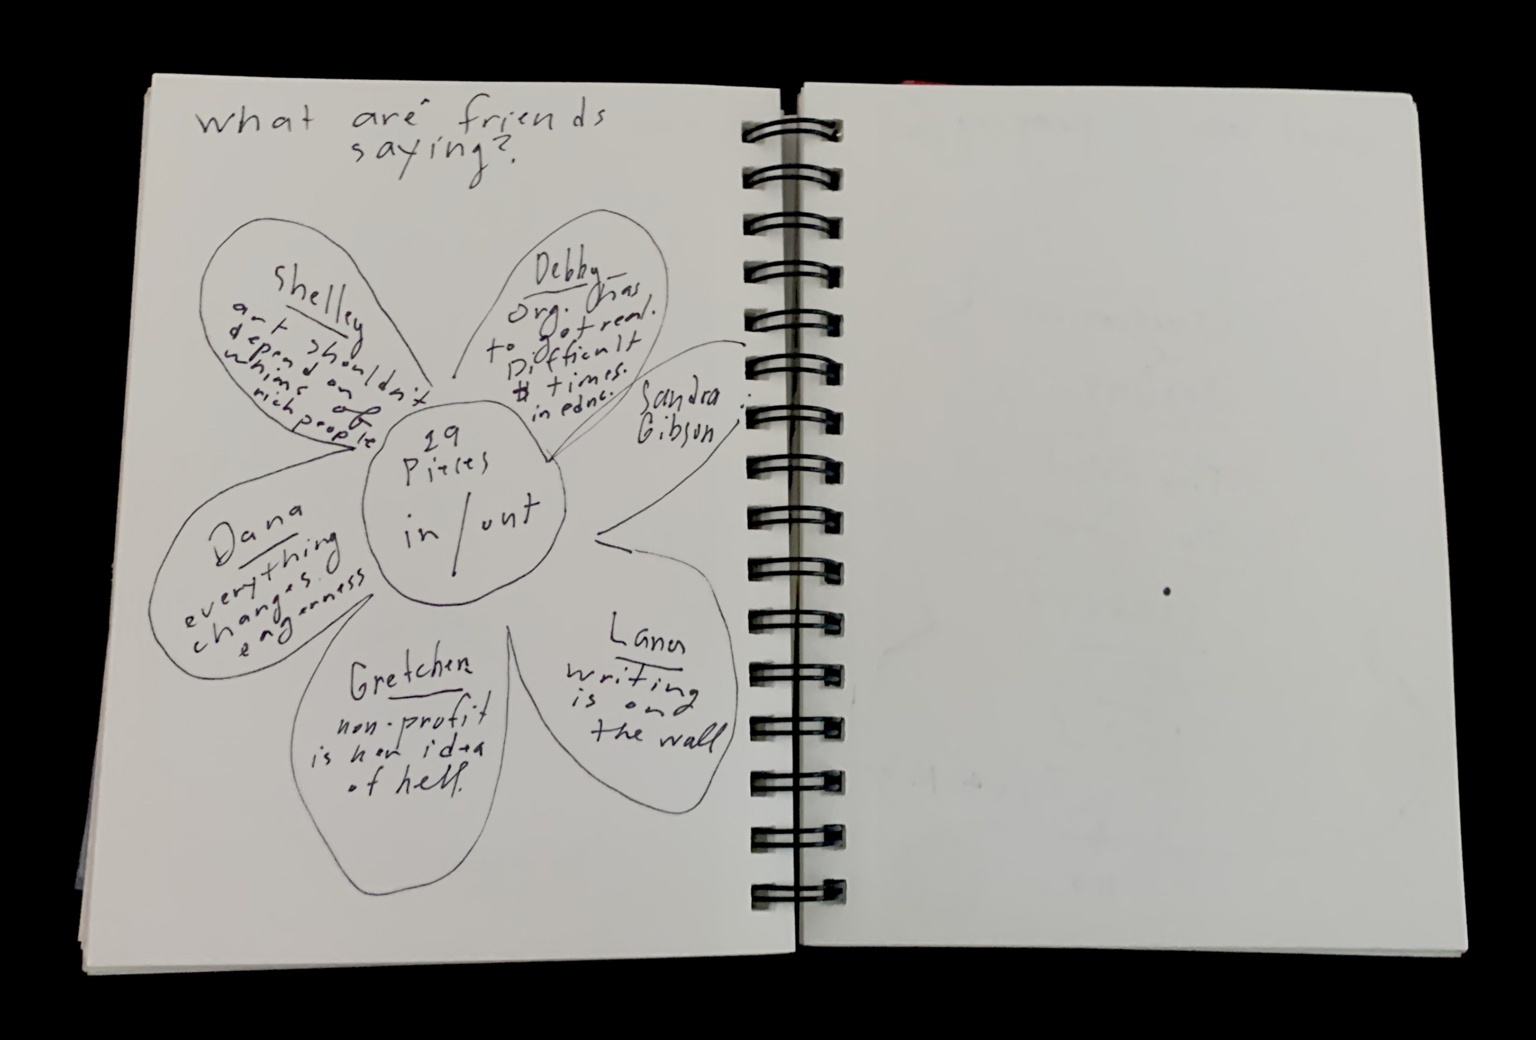 what are friends
saying?
Shelley
art shouldn't
depend on
whims of
rich people
Debby-
org. has
to get real.
Difficult
$ times.
in educ.
Sandra
Gibson
19
Pieces
in/out
Dana
everything
changes.
eagerness
Gretchen
non-profit
is her idea
of hell.
Lana
writing
is on
the wall